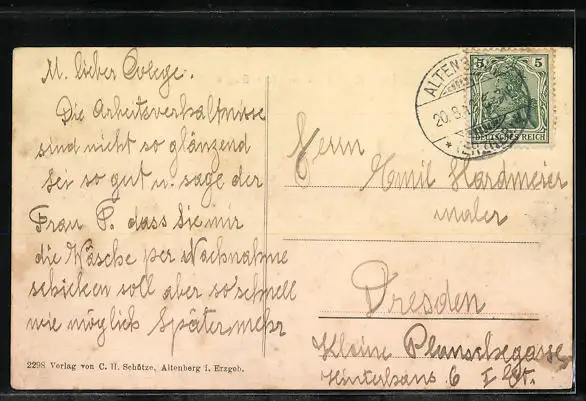 M. lieber Colege.
Die Arbeitsverhältnisse
sind nicht so glänzend
sei so gut u. sage der
Frau P. dass Sie mir
die Wäsche per Nachnahme
schicken soll aber so schnell
wie möglich Später mehr
2298 Verlag von C. H. Schütze, Altenberg i. Erzgeb.
ALTENB
20.8.
* (ERZGE
5 5
DEUTSCHES REICH
Herrn
Emil Hardmeier
maler
Dresden
Kleine Plaunschegasse
Hinterhaus 6 I